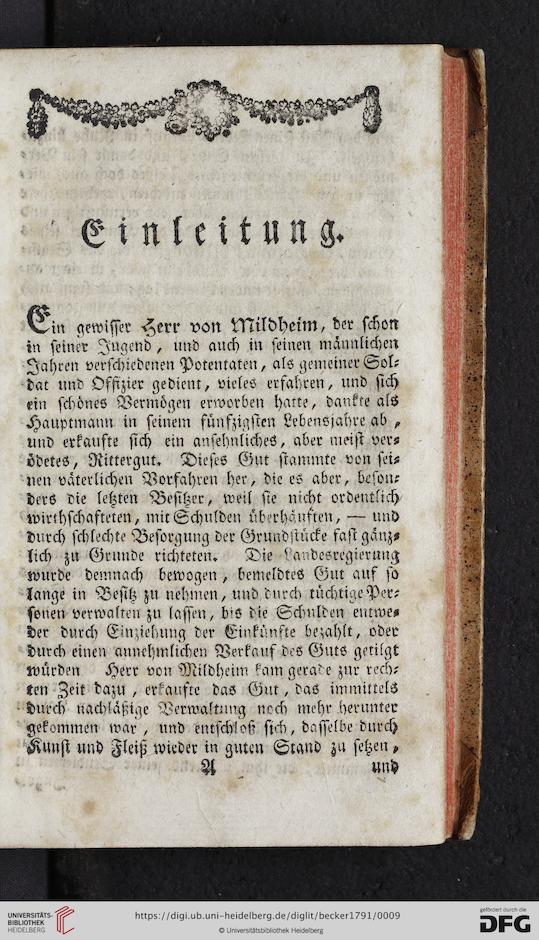 Einleitung.
Ein gewisser Herr von Mildheim, der schon
in seiner Jugend, und auch in seinen männlichen
Jahren verschiedenen Potentaten, als gemeiner Sol-
dat und Offizier gedient, vieles erfahren, und sich
ein schönes Vermögen erworben hatte, dankte als
Hauptmann in seinem fünfzigsten Lebensjahre ab,
und erkaufte sich ein ansehnliches, aber meist ver-
ödetes, Rittergut. Dieses Gut stammte von sei-
nen väterlichen Vorfahren her, die es aber, beson-
ders die letzten Besitzer, weil sie nicht ordentlich
wirthschafteten, mit Schulden überhäuften, — und
durch schlechte Besorgung der Grundstücke fast gänz-
lich zu Grunde richteten. Die Landesregierung
wurde demnach bewogen, bemeldtes Gut auf so
lange in Besitz zu nehmen, und durch tüchtige Per-
sonen verwalten zu lassen, bis die Schulden entwe-
der durch Einziehung der Einkünfte bezahlt, oder
durch einen annehmlichen Verkauf des Guts getilgt
würden Herr von Mildheim kam gerade zur rech-
ten Zeit dazu, erkaufte das Gut, das immittels
durch nachläßige Verwaltung noch mehr herunter
gekommen war, und entschloß sich, dasselbe durch
Kunst und Fleiß wieder in guten Stand zu setzen,
A und
UNIVERSITÄTS-
BIBLIOTHEK
HEIDELBERG
https://digi.ub.uni-heidelberg.de/diglit/becker1791/0009
© Universitätsbibliothek Heidelberg
gefördert durch die
DFG